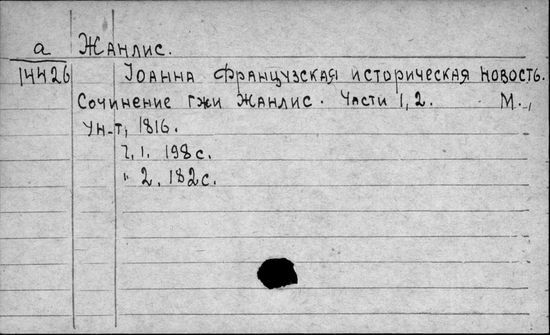 а Жанлис.
14426 Іоанна французская историческая новость.
Сочинение гжи Жанлис. Части 1, 2. М.,
Ун-т, 1816.
Ч. 1. 198 с.
" 2. 182 с.